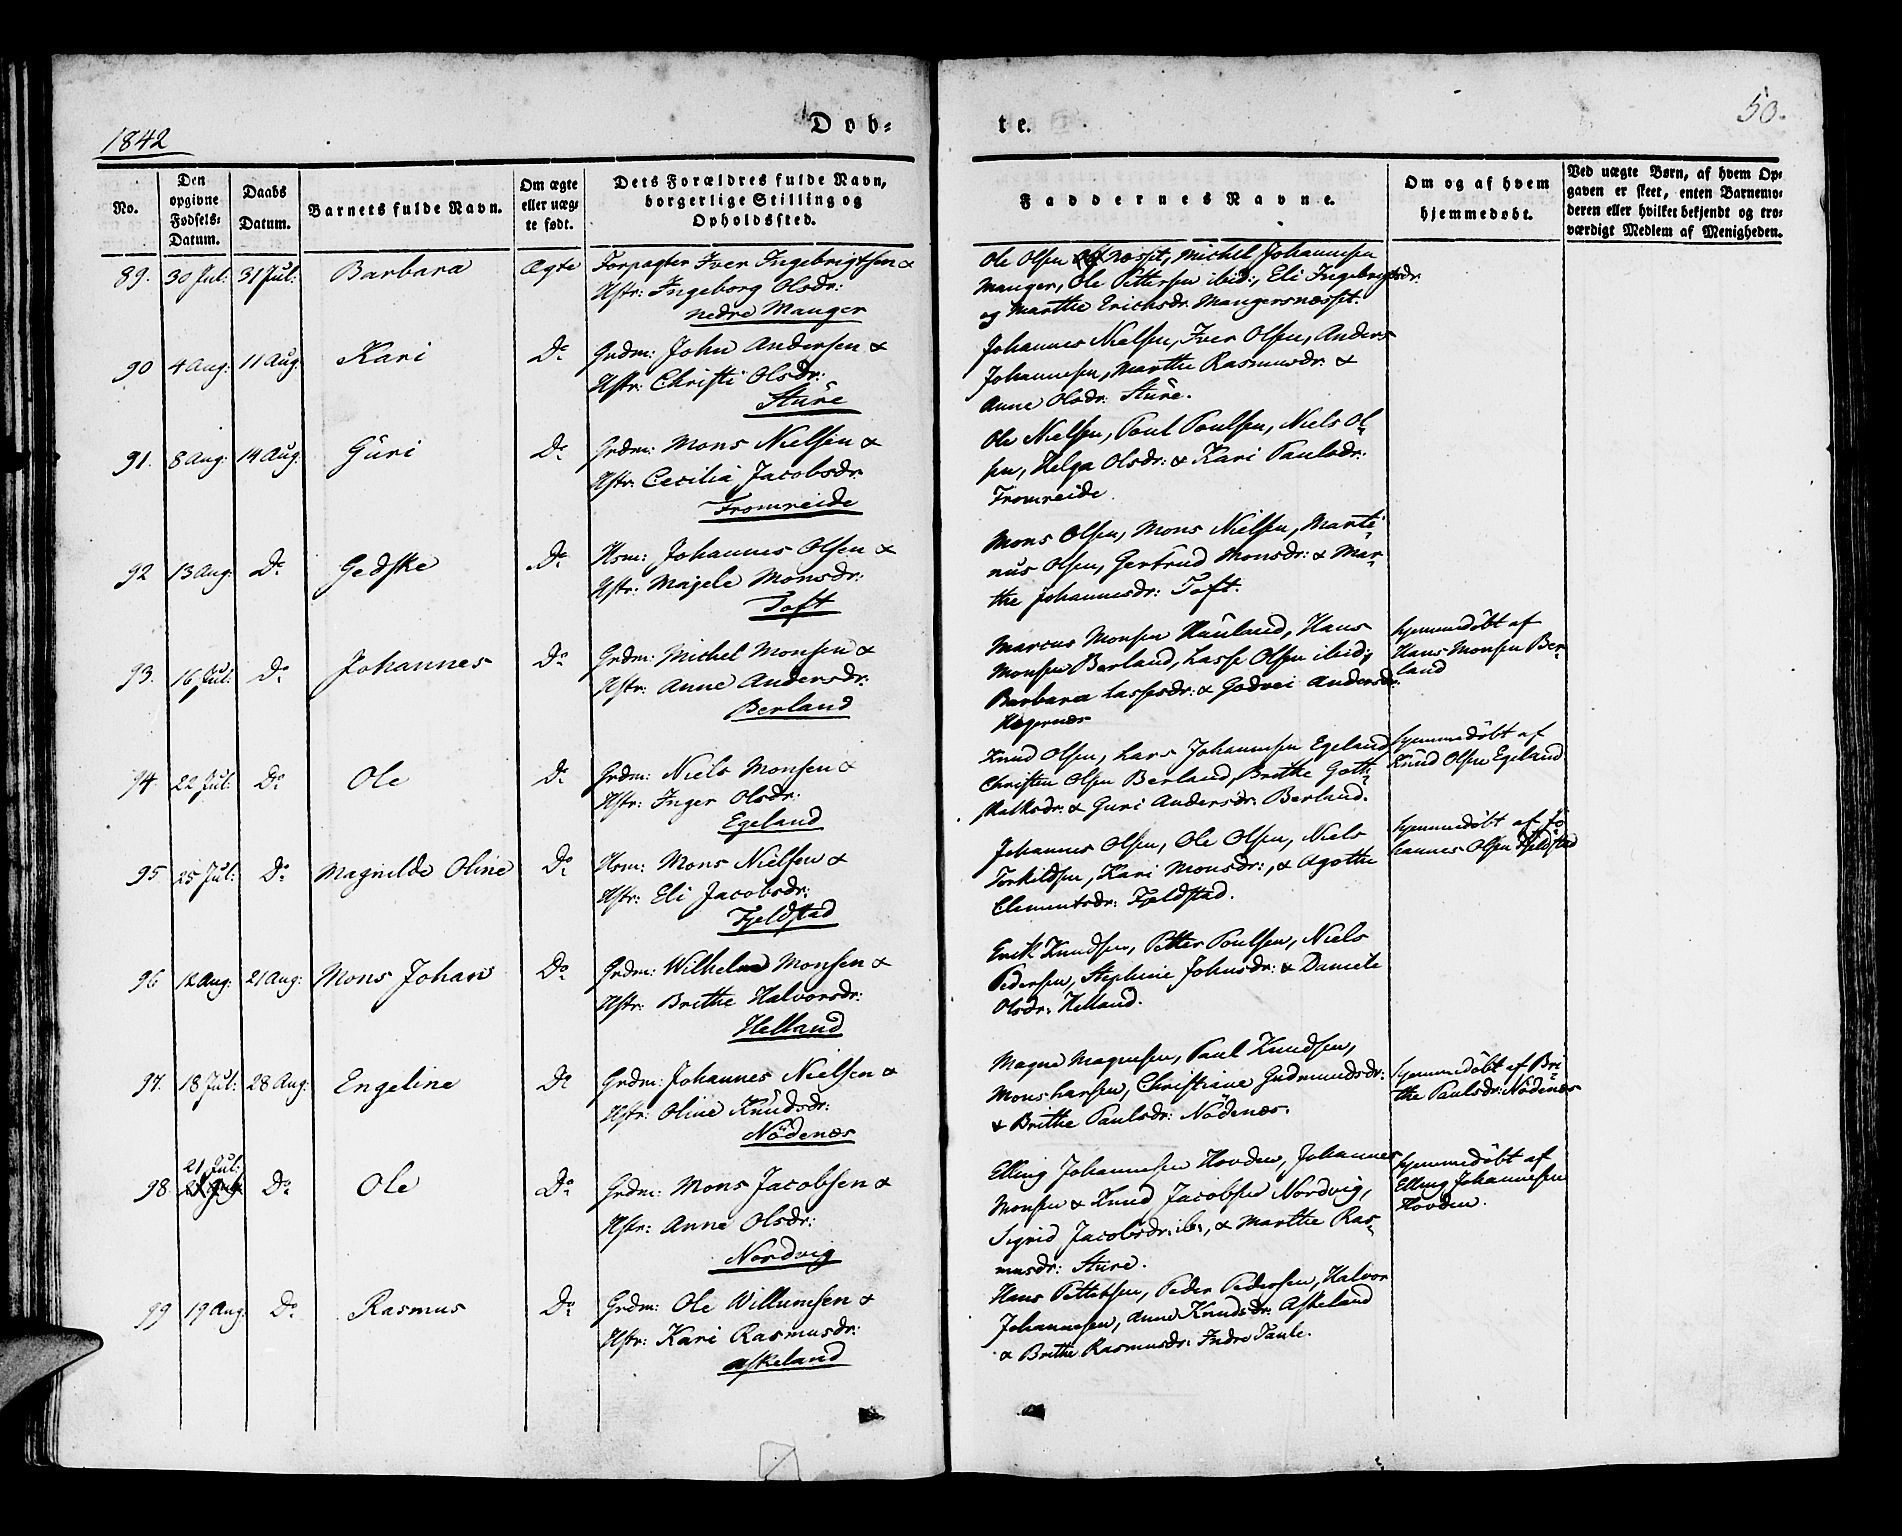 1842
Dob-
te.
50.
No.
Den opgivne Fødsels-Datum.
Daabs Datum.
Barnets fulde Navn.
Om ægte eller uægte født.
Dets Forældres fulde Navn, borgerlige Stilling og Opholdssted.
Faddernes Navne.
Om og af hvem hjemmedøbt.
Ved uægte Børn, af hvem Opgaven er skeet, enten Barnemoderen eller hvilket bekjendt og troværdigt Medlem af Menigheden.
89. 30 Jul: 31 Jul: Barbara Ægte Forpagter Iver Ingebrigtsen &
Hstr: Ingeborg Olsdr:
nedre Manger
Ole Olsen Næsset, Michel Johannesen
Manger, Ole Pettersen ibid:, Eli Ingebrigtsdr:
og Marthe Erichsdr: Mangersnæsset.
90 4 Aug: 11 Aug: Kari Do Grdm: John Andersen &
Hstr: Christi Olsdr:
Stüre
Johannes Nielsen, Iver Olsen, Anders
Johannesen, Marthe Rasmusdr: &
Anne Olsdr: Stüre.
91. 8 Aug: 14 Aug: Güri Do Grdm: Mons Nielsen &
Hstr: Cecilia Jacobsdr:
Fromreide
Ole Nielsen, Poul Poulsen, Niels Ol-
sen, Helga Olsdr: & Kari Paulsdr:
Fromreide.
92 13 Aug: Do Gedske Do Hsm: Johannes Olsen &
Hstr: Magele Monsdr:
Toft
Mons Olsen, Mons Nielsen, Marti-
nus Olsen, Gertrud Monsdr: & Mar-
the Johannesdr: Toft.
93. 16 Jul: Do Johannes Do Grdm: Michel Monsen &
Hstr: Anne Andersdr:
Berland
Marcus Monsen Hauland, Hans
Monsen Berland, Lasse Olsen ibid:,
Barbara Lassesdr: & Godvei Andersdr:
Hagenæs
hjemmedöbt af
Hans Monsen Ber-
land
94. 22 Jul: Do Ole Do Grdm: Niels Monsen &
Hstr: Inger Olsdr:
Egeland
Knud Olsen, Lars Johannesen Egeland
Christen Olsen Berland, Brithe Gott-
skalksdr: & Guri Andersdr: Berland.
hjemmedöbt af
Knüd Olsen Egeland
95 25 Jul: Do Magnilde Oline Do Hsm: Mons Nielsen &
Hstr: Eli Jacobsdr:
Fjeldstad
Johannes Olsen, Ole Olsen, Niels
Torkildsen, Kari Monsdr:, & Agothe
Clementsdr: Fjeldstad.
hjemmedöbt af Jo-
hannes Olsen Fjeldstad
96 12 Aug: 21 Aug: Mons Johan Do Grdm: Wilhelm Monsen &
Hstr: Brithe Halvorsdr:
Helland
Erik Knudsen, Petter Poulsen, Niels
Pedersen, Stephine Johnsdr: & Daniele
Olsdr: Helland.
97. 18 Jul: 28 Aug: Engeline Do Grdm: Johannes Nielsen &
Hstr: Oline Knüdsdr:
Nödenæs
Magne Magnesen, Paul Knudsen,
Mons Larsen, Christiane Gudmundsdr:
& Brithe Paulsdr: Nödenæs.
hjemmedöbt af Bri-
the Paulsdr: Nödenæs
98. 21 Jul: Do Ole Do Grdm: Mons Jacobsen &
Hstr: Anne Olsdr:
Nordvig
Elling Johannesen Hovden, Johannes
Monsen & Knud Jacobsen Nordvig,
Sigrid Jacobsdr: ib:, & Marthe Ras-
musdr: Sture.
hjemmedöbt af
Elling Johannesen
Hovden.
99 19 Aug: Do Rasmus Do Grdm: Ole Willumsen &
Hstr: Kari Rasmusdr:
Askeland
Hans Pettersen, Peder Pedersen, Halvor
Johannesen, Anne Knudsdr: Askeland
& Brithe Rasmusdr: Indre Taule.